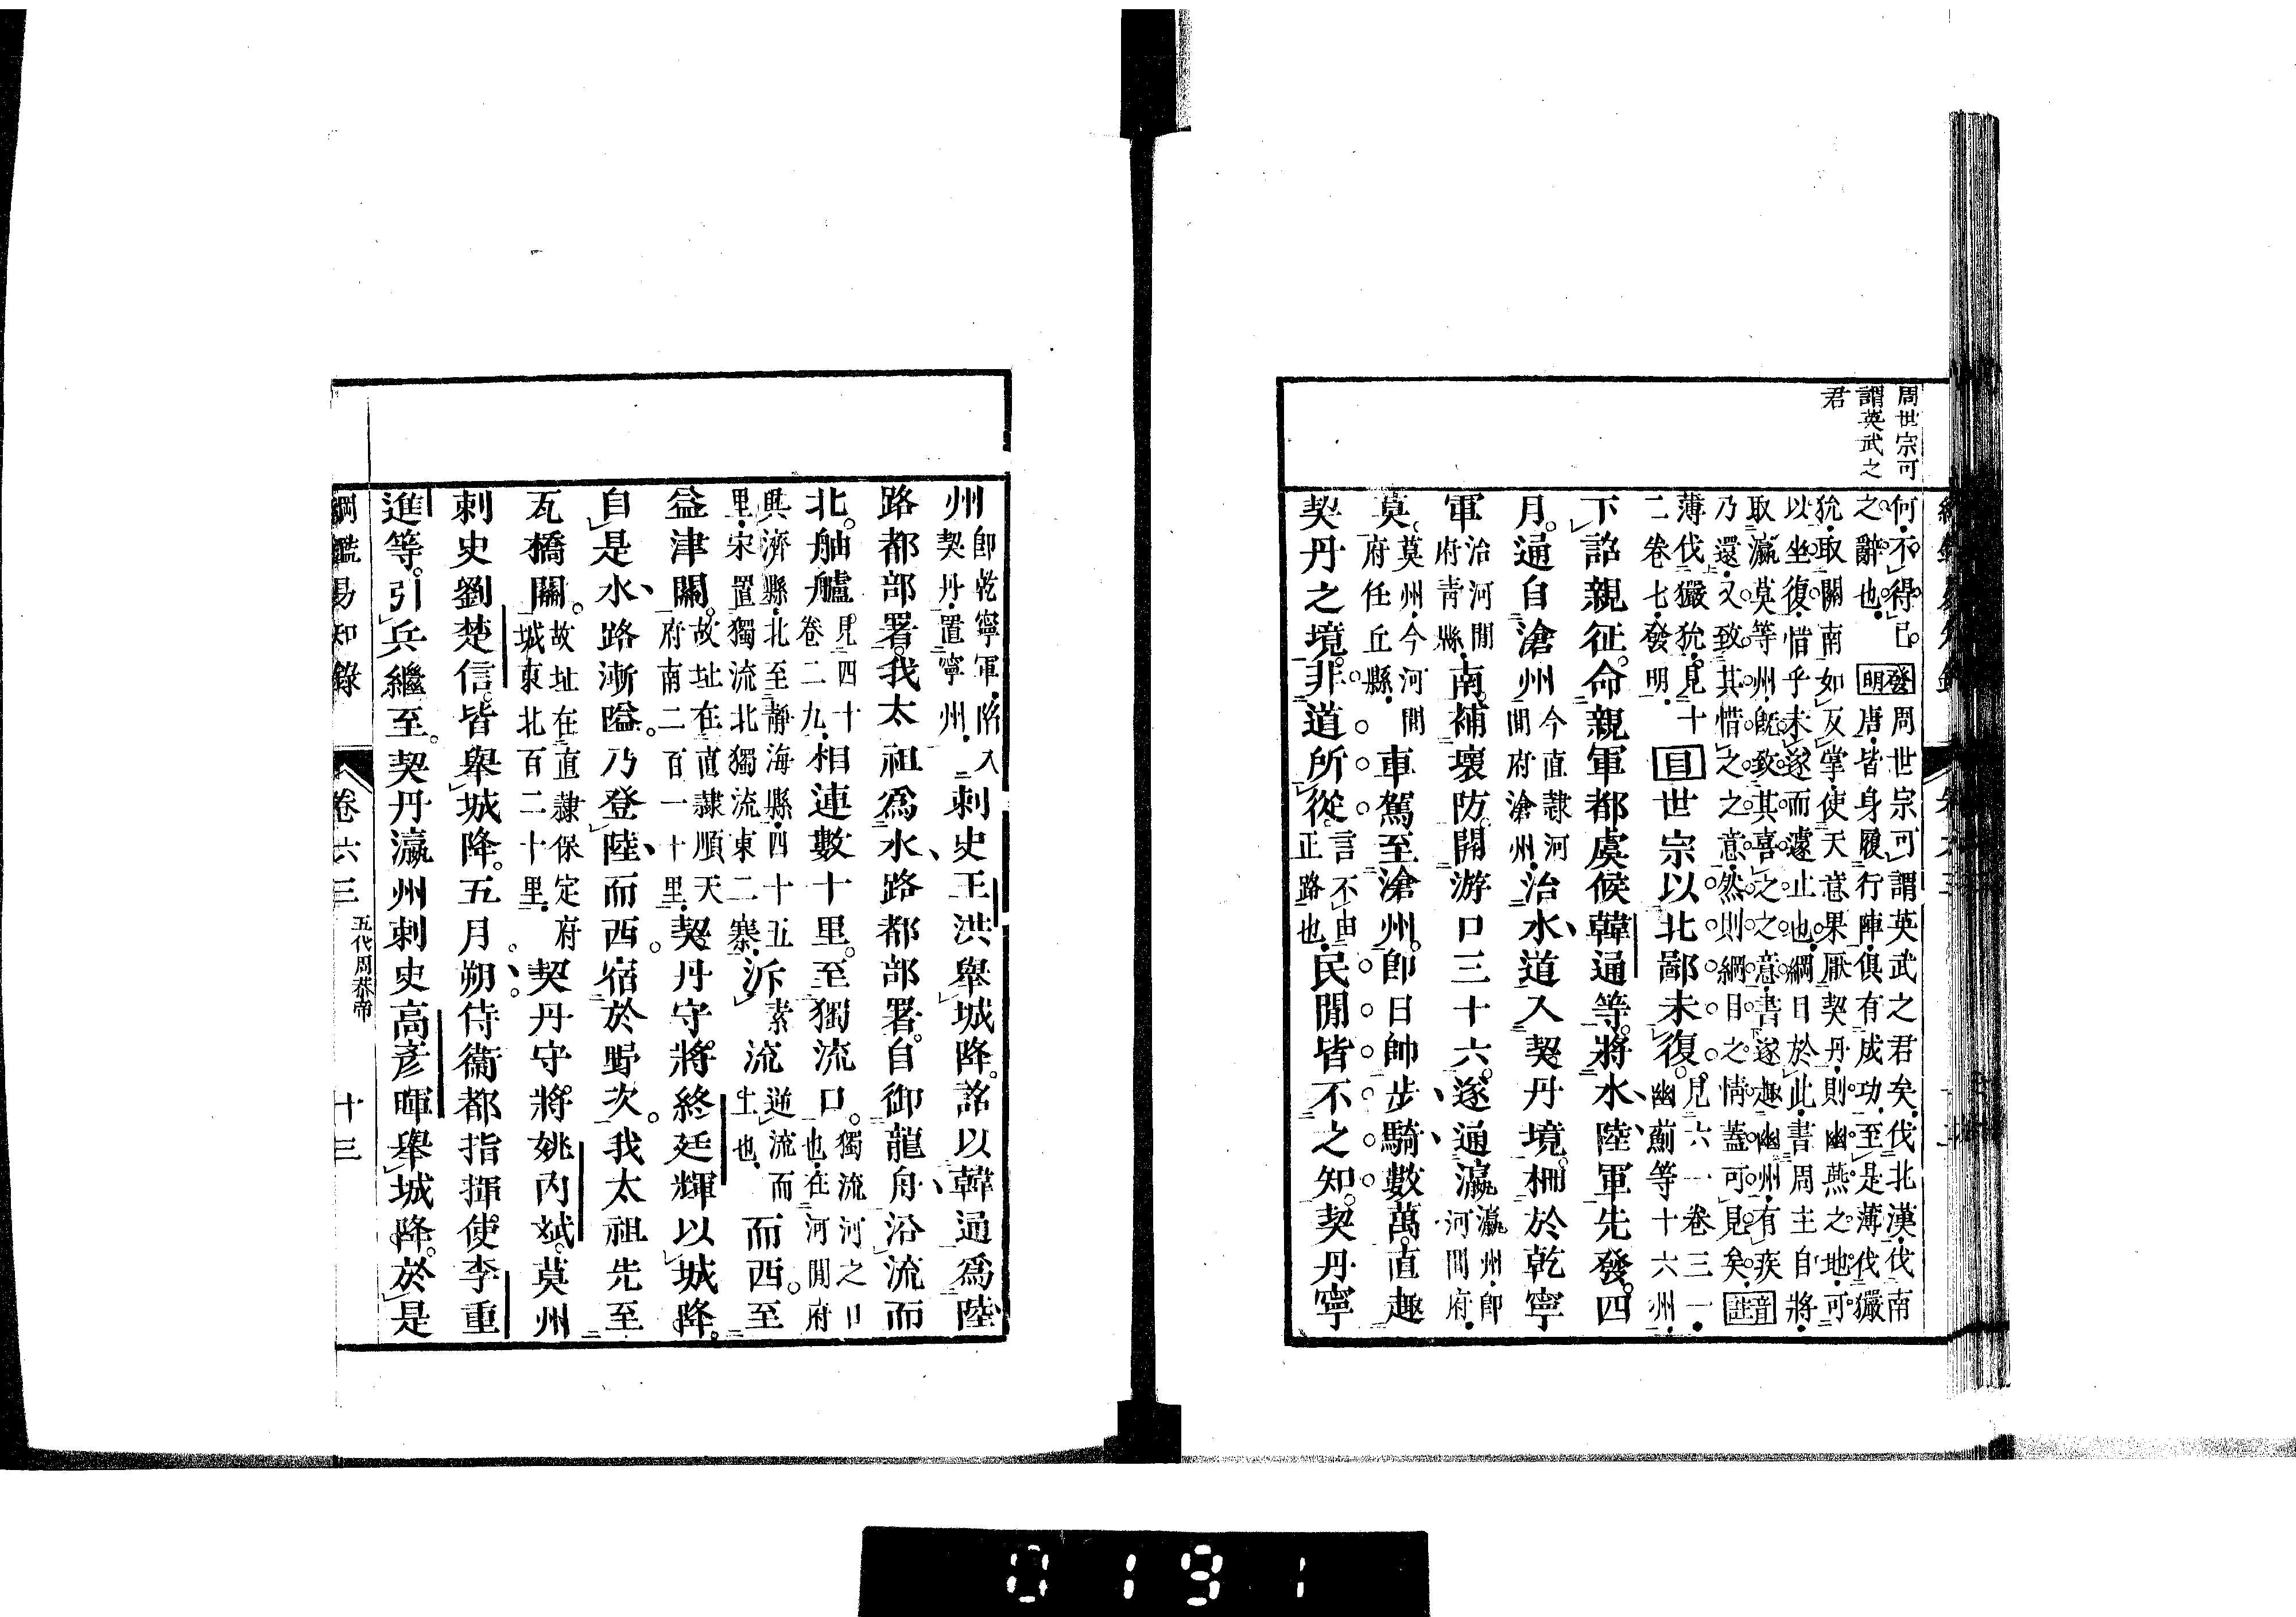 周世宗可
謂英武之
君
何不得已
之辭也
發明
周世宗可謂英武之君矣伐北漢伐南
唐皆身履行陣俱有成功至是薄伐玁
狁取關南如反掌使天意果厭契丹則幽燕之地可
以坐復惜乎未遂而遽止也綱目於此書周主自將
取瀛莫等州既致其喜之之意書遂趣幽州有疾
乃還又致其惜之之意然則綱目之情蓋可見矣
音註
薄伐玁狁見十
二卷七發明
目世宗以北鄙未復
見六一卷三一
幽薊等十六州
下詔親征命親軍都虞候韓通等將水陸軍先發四
月通自滄州
今直隸河
間府滄州
治水道入契丹境柵於乾寧
軍
治河間
府靑縣
南補壞防開游口三十六遂通瀛
瀛州卽
河間府
莫
莫州今河間
府任丘縣
車駕至滄州卽日帥步騎數萬直趣
契丹之境非道所從
言不由
正路也
民間皆不之知契丹寧
州
卽乾寧軍陷入
契丹置寧州
刺史王洪舉城降詔以韓通爲陸
路都部署我太祖爲水路都部署自御龍舟沿流而
北舳艫
見四十
卷二九
相連數十里至獨流口
獨流河之口
也在河間府
興濟縣北至靜海縣四十五
里宋置獨流北獨流東二寨
泝
素
流
逆流而
上也
而西至
益津關
故址在直隸順天
府南二百一十里
契丹守將終廷輝以城降
自是水路漸隘乃登陸而西宿於野次我太祖先至
瓦橋關
故址在直隸保定府
城東北百二十里
契丹守將姚内斌莫州
刺史劉楚信皆舉城降五月朔侍衞都指揮使李重
進等引兵繼至契丹瀛州刺史高彥暉舉城降於是
綱鑑易知錄
卷六三
五代周恭帝
十三
0191